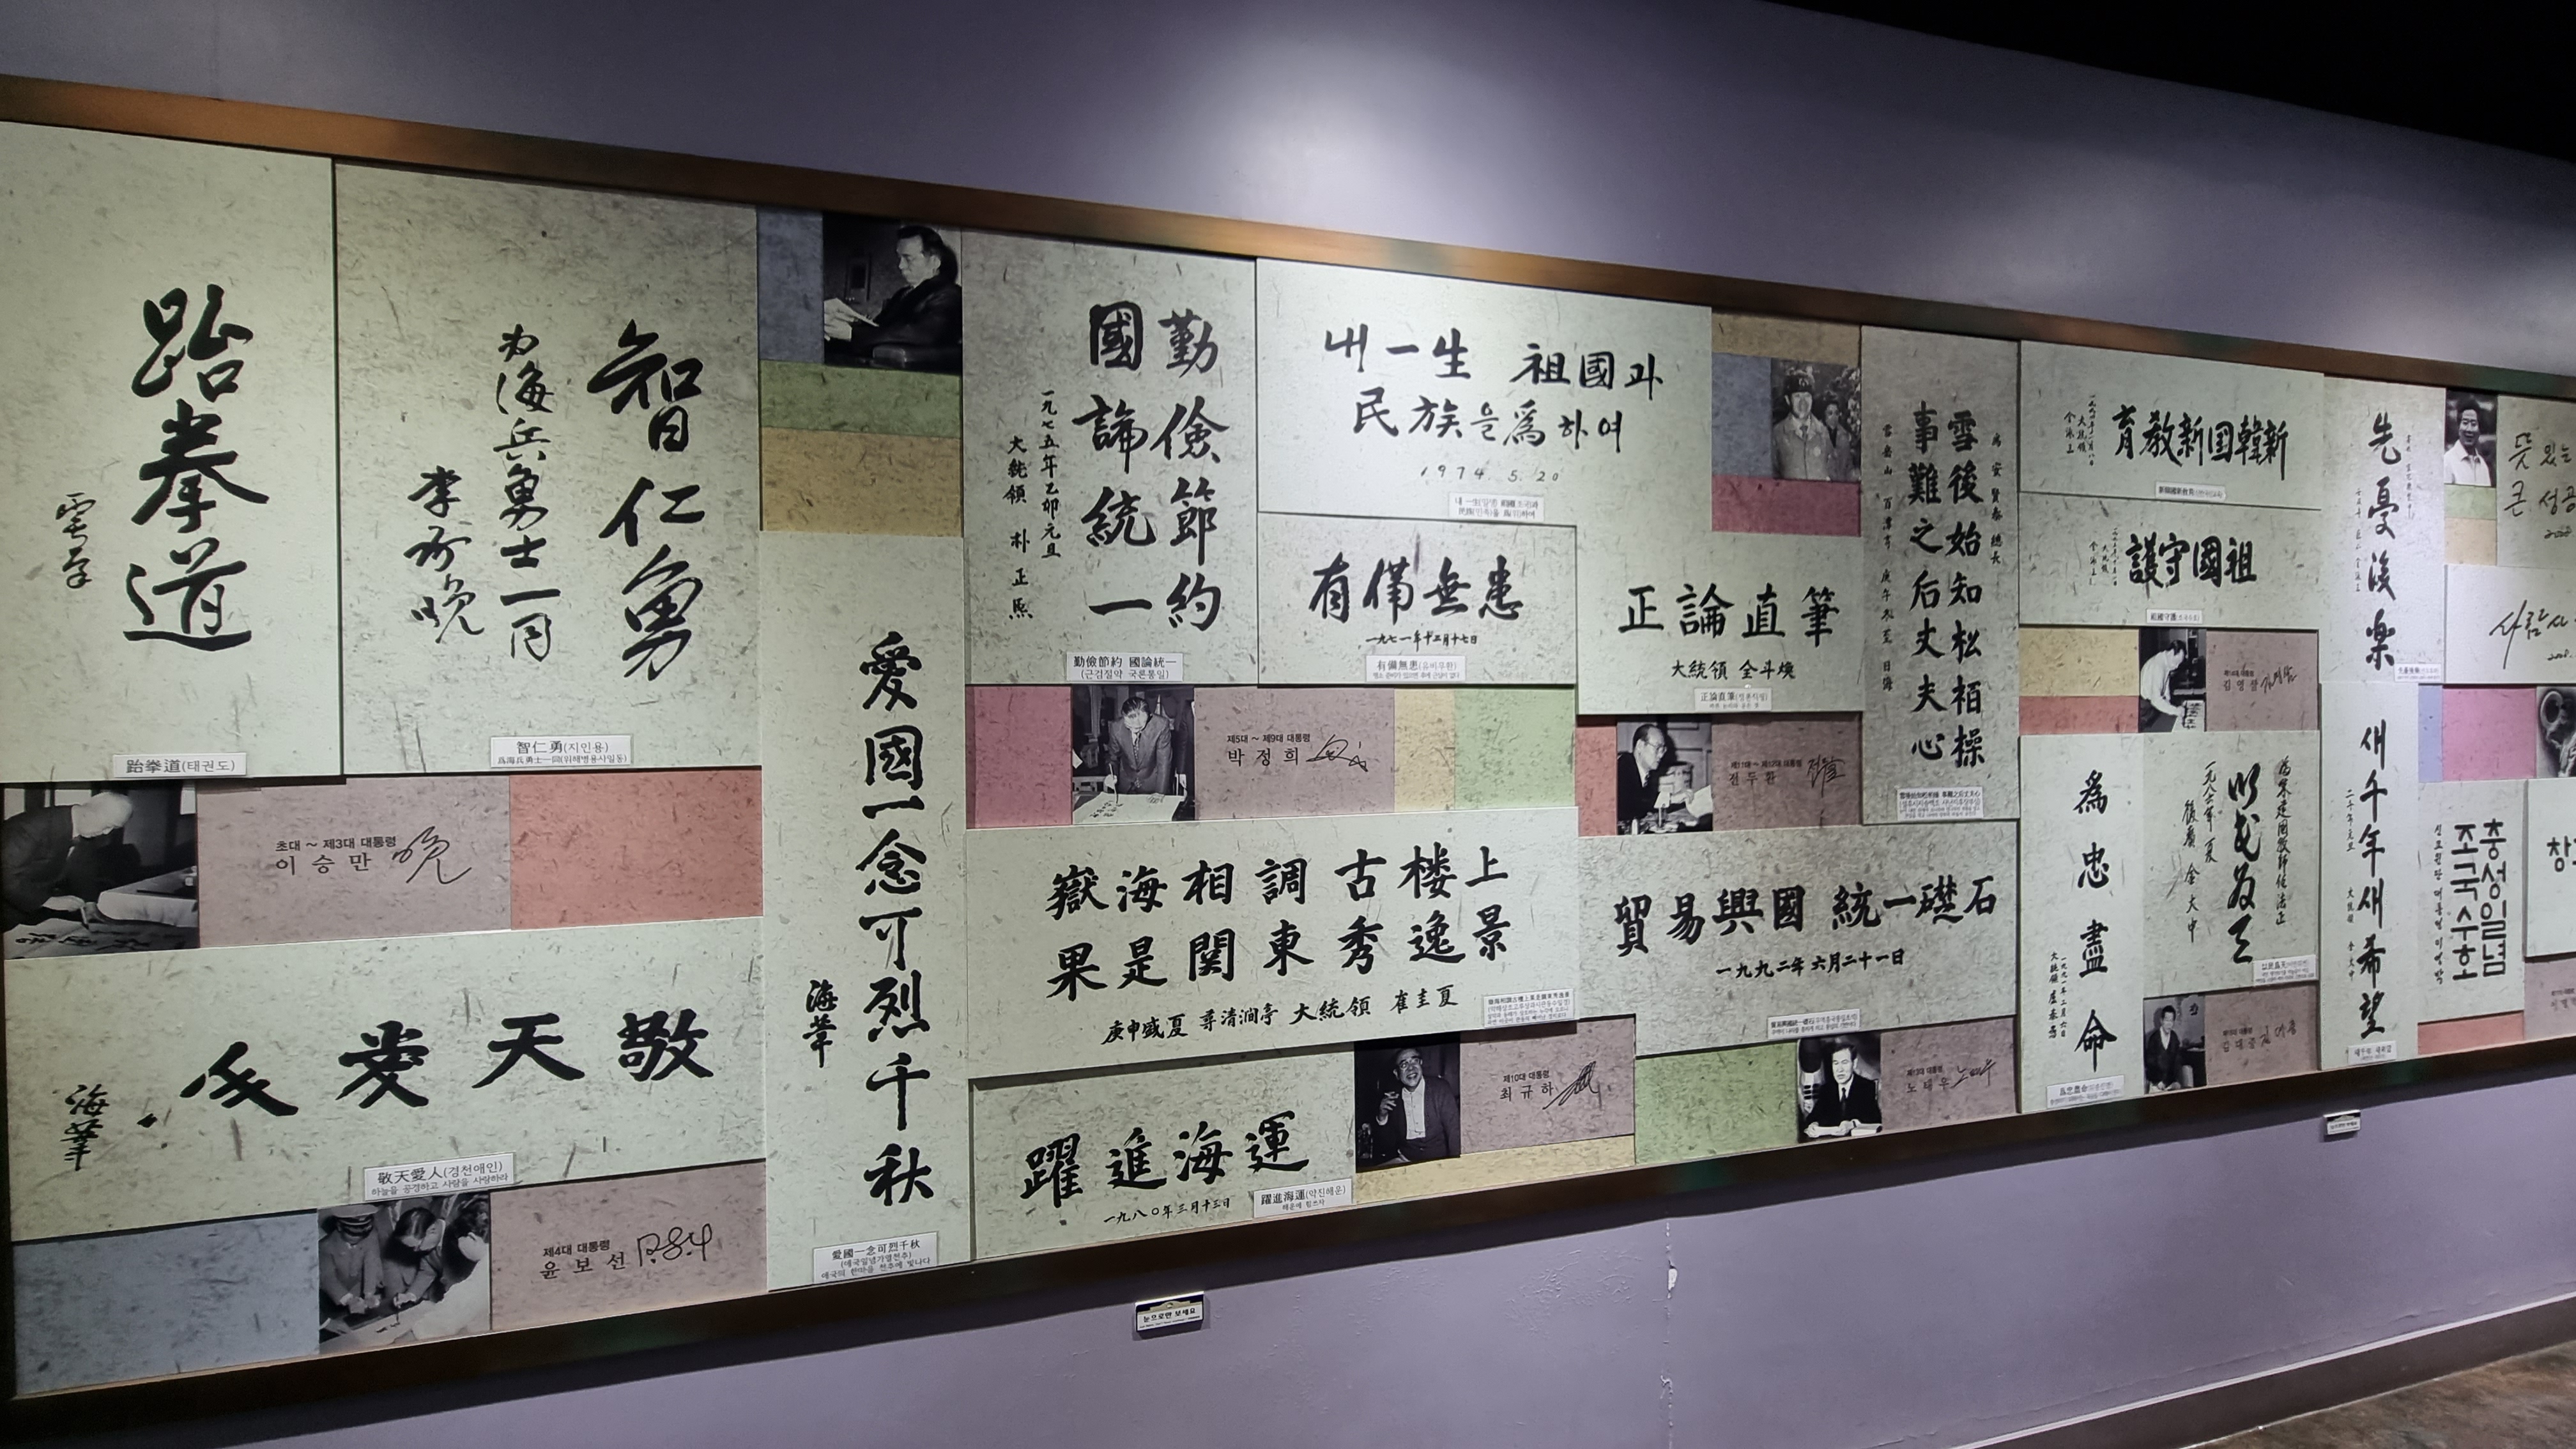 跆拳道
雩南
跆拳道(태권도)
智仁勇
为海兵勇士一同
李承晩
智仁勇(지인용)
爲海兵勇士一同(위해병용사일동)
초대 ~ 제3대 대통령
이승만
敬天愛人
海葦
敬天愛人(경천애인)
하늘을 공경하고 사람을 사랑하라
제4대 대통령
윤보선
愛國一念可烈千秋
海葦
愛國一念可烈千秋
(애국일념가열천추)
애국의 한마음 천추에 빛나다
勤儉節約
國論統一
一九七五年乙卯元旦
大統領 朴正熙
勤儉節約 國論統一
(근검절약 국론통일)
내一生 祖國과
民族을 爲하여
1974. 5. 20
有備無患
一九七一年十二月十七日
有備無患(유비무환)
제5대 ~ 제9대 대통령
박정희
嶽海相調古楼上
果是関東秀逸景
庚申盛夏 尋清澗亭 大統領 崔圭夏
躍進海運
一九八〇年三月十三日
躍進海運(약진해운)
제10대 대통령
최규하
正論直筆
大統領 全斗煥
正論直筆(정론직필)
제11대 ~ 제12대 대통령
전두환
雪後始知松栢操
事難之后丈夫心
貿易興國 統一礎石
一九九二年 六月二十一日
제13대 대통령
노태우
新韓国新教育
祖國守護
祖國守護
김영삼
爲忠盡命
先憂後楽
새千年새希望
충성일념
조국수호
뜻 있는
큰 성공
사람 사
눈으로만 보세요